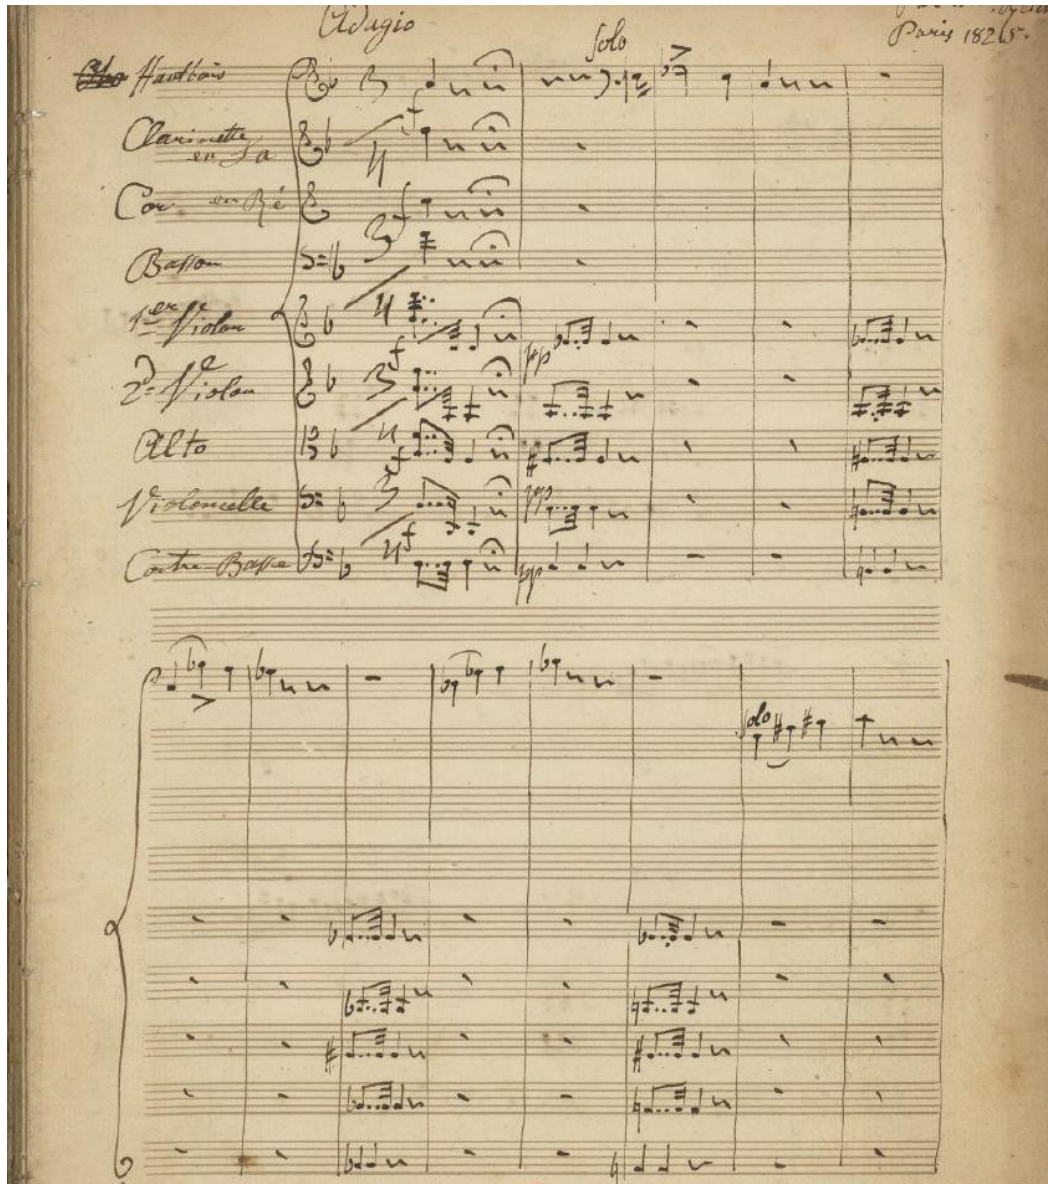 Adagio
Solo
Paris 1825.
Hautbois
Clarinette
en La
Cor en Ré
Basson
1er Violon
2d Violon
Alto
Violoncelle
Contre-Basse
3
4
3
4
3
4
3
4
f
f
f
f
f
f
pp
pp
pp
Solo